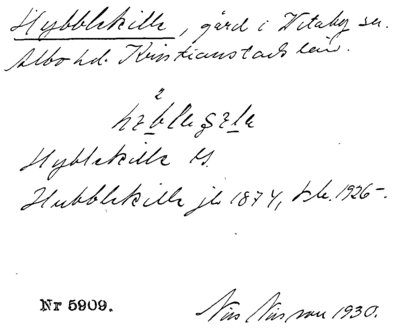 Hybblekille, gård i Vitaby sn.
Albo hd. Kristianstads län.
Hyblekille
Hubblekille jb 1874, 1926.
Nr 5909.
Nils Nilsson 1930.